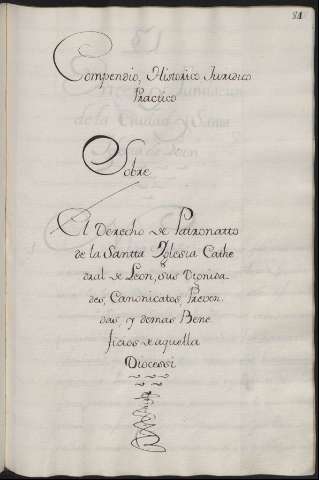 81
Compendio, Historico Juridico
Practico
Sobre
El Derecho de Patronatto
de la Santta Yglesia Cathe
dral de Leon, sus Dignida
des, Canonicatos, Preven
das y demas Bene
ficios de aquella
Diocessi